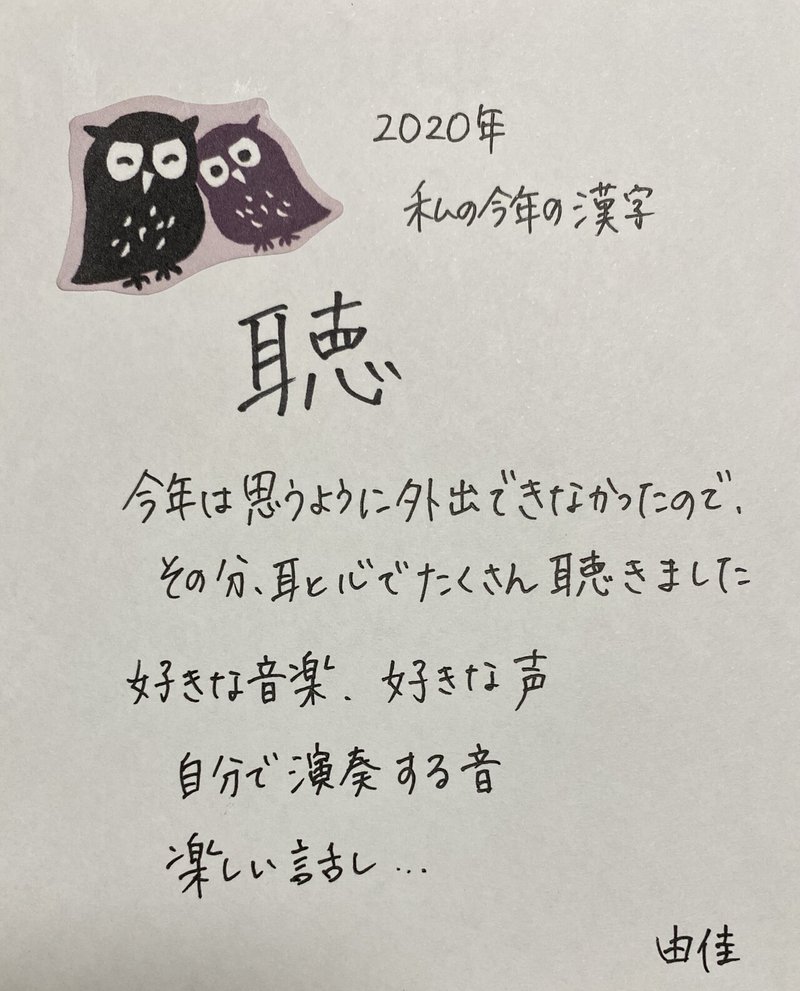 2020年
私の今年の漢字
聴
今年は思うように外出できなかったので、
その分、耳と心でたくさん聴きました
好きな音楽、好きな声
自分で演奏する音
楽しい話し…
由佳